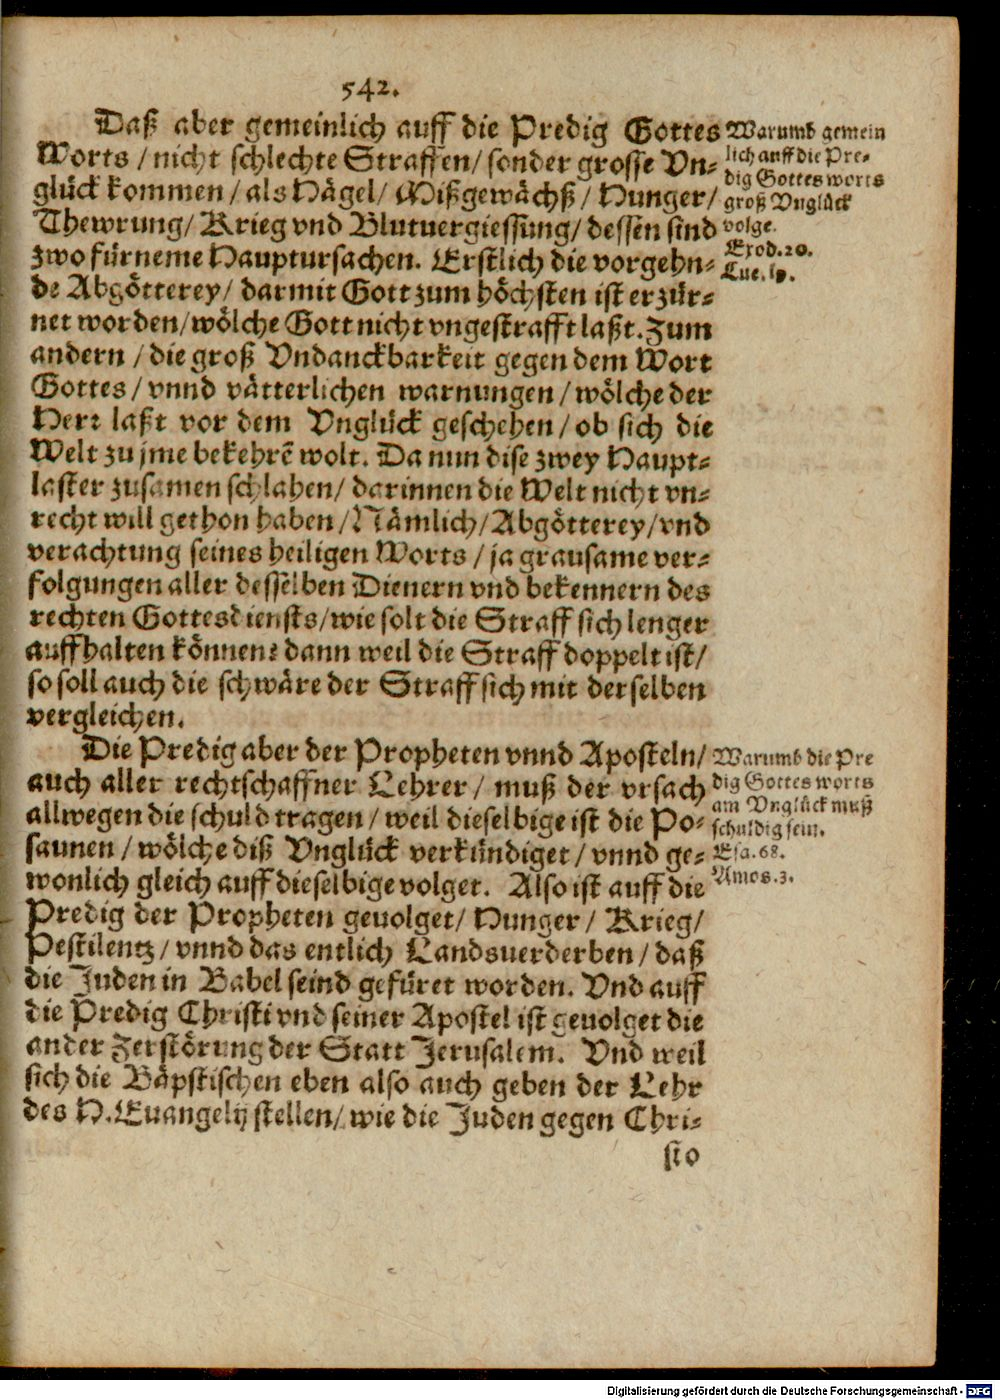 542.
Daß aber gemeinlich auff die Predig Gottes
Worts / nicht schlechte Straffen / sonder grosse Vn-
glück kommen / als Hägel / Mißgewächß / Hunger /
Thewrung / Krieg vnd Blutuergiessung / dessen sind
zwo fürneme Hauptursachen. Erstlich die vorgehn-
de Abgötterey / darmit Gott zum höchsten ist erzür-
net worden / wölche Gott nicht vngestrafft laßt. Zum
andern / die groß Vndanckbarkeit gegen dem Wort
Gottes / vnnd vätterlichen warnungen / wölche der
Herr laßt vor dem Vnglück geschehen / ob sich die
Welt zu jme bekehrē wolt. Da nun dise zwey Haupt-
laster zusamen schlahen / darinnen die Welt nicht vn-
recht will gethon haben / Nämlich / Abgötterey / vnd
verachtung seines heiligen Worts / ja grausame ver-
folgungen aller desselben Dienern vnd bekennern des
rechten Gottesdiensts / wie solt die Straff sich lenger
auffhalten können? dann weil die Straff doppelt ist /
so soll auch die schwäre der Straff sich mit derselben
vergleichen.
Warumb gemein
lich auff die Pre-
dig Gottes worts
groß Vnglück
volge.
Exod. 20.
Luc. 19.
Die Predig aber der Propheten vnnd Aposteln /
auch aller rechtschaffner Lehrer / muß der vrsach
allwegen die schuld tragen / weil dieselbige ist die Po-
saunen / wölche diß Vnglück verkündiget / vnnd ge-
wonlich gleich auff dieselbige volget. Also ist auff die
Predig der Propheten geuolget / Hunger / Krieg /
Pestilentz / vnnd das entlich Landsuerderben / daß
die Juden in Babel seind gefüret worden. Vnd auff
die Predig Christi vnd seiner Apostel ist geuolget die
ander Zerstörung der Statt Jerusalem. Vnd weil
sich die Bäpstischen eben also auch geben der Lehr
des H. Euangelij stellen / wie die Juden gegen Chri-
Warumb die Pre
dig Gottes worts
am Vnglück muß
schuldig sein.
Esa. 68.
Amos. 3.
sto
Digitalisierung gefördert durch die Deutsche Forschungsgemeinschaft - DFG